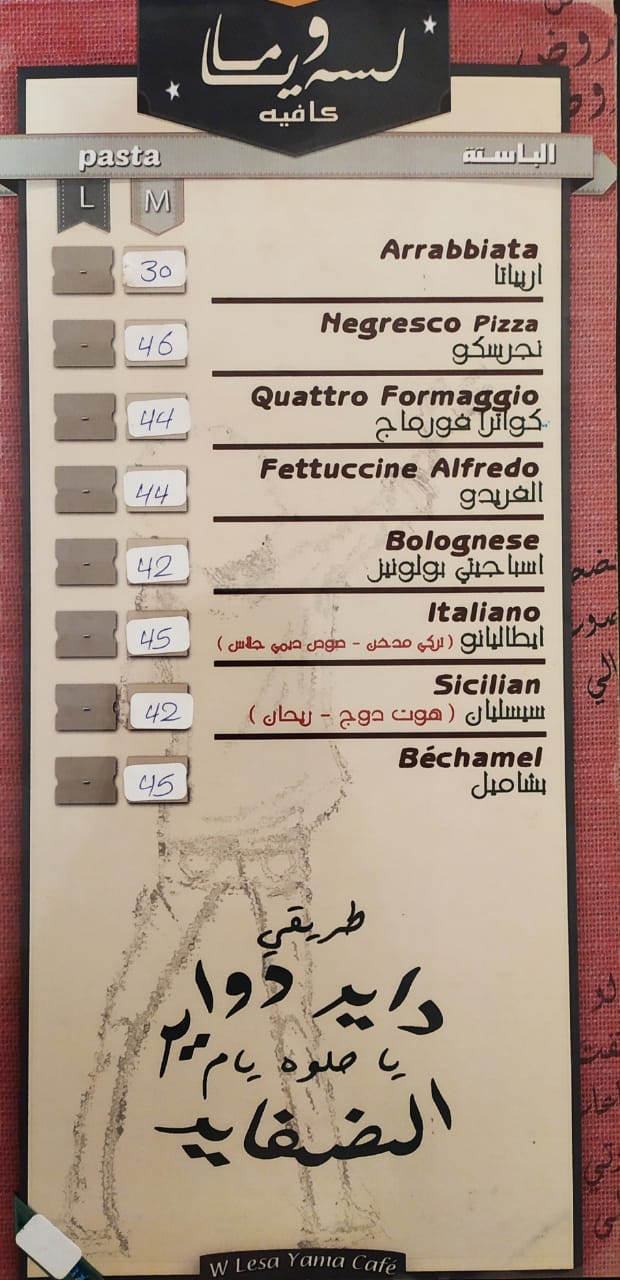 لسه وياما
كافيه
pasta الباستة
L M
Arrabbiata
- 30 اربياتا
Negresco Pizza
- 46 نجرسكو
Quattro Formaggio
- 44 كواترا فورماج
Fettuccine Alfredo
- 44 الفريدو
Bolognese
- 42 اسباجيتي بولونيز
Italiano
- 45 ايطاليانو ( تركي مدخن - صوص ديمي جلاس )
Sicilian
- 42 سيسليان ( هوت دوج - ريحان )
Béchamel
- 45 بشاميل
طريقي
داير دوار
يا حلوه يام
الضفاير
W Lesa Yama Café